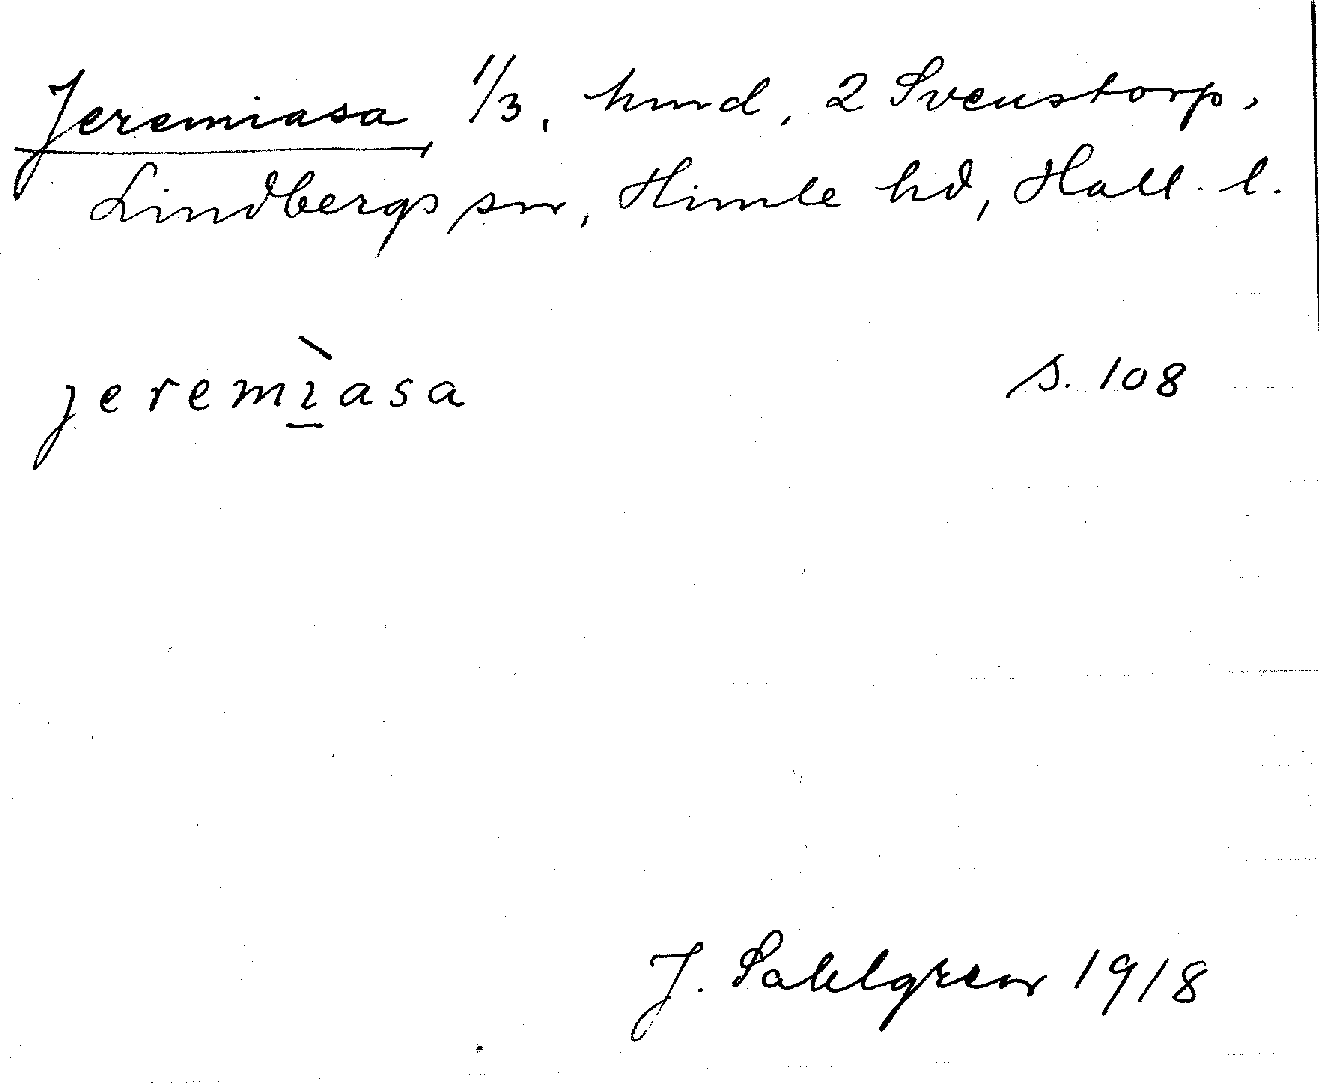 Jeremiasa 1/3, hmd, 2 Svenstorp,
Lindbergs sn, Himle hd, Hall. l.
jeremì̱asa s. 108
J. Sahlgren 1918